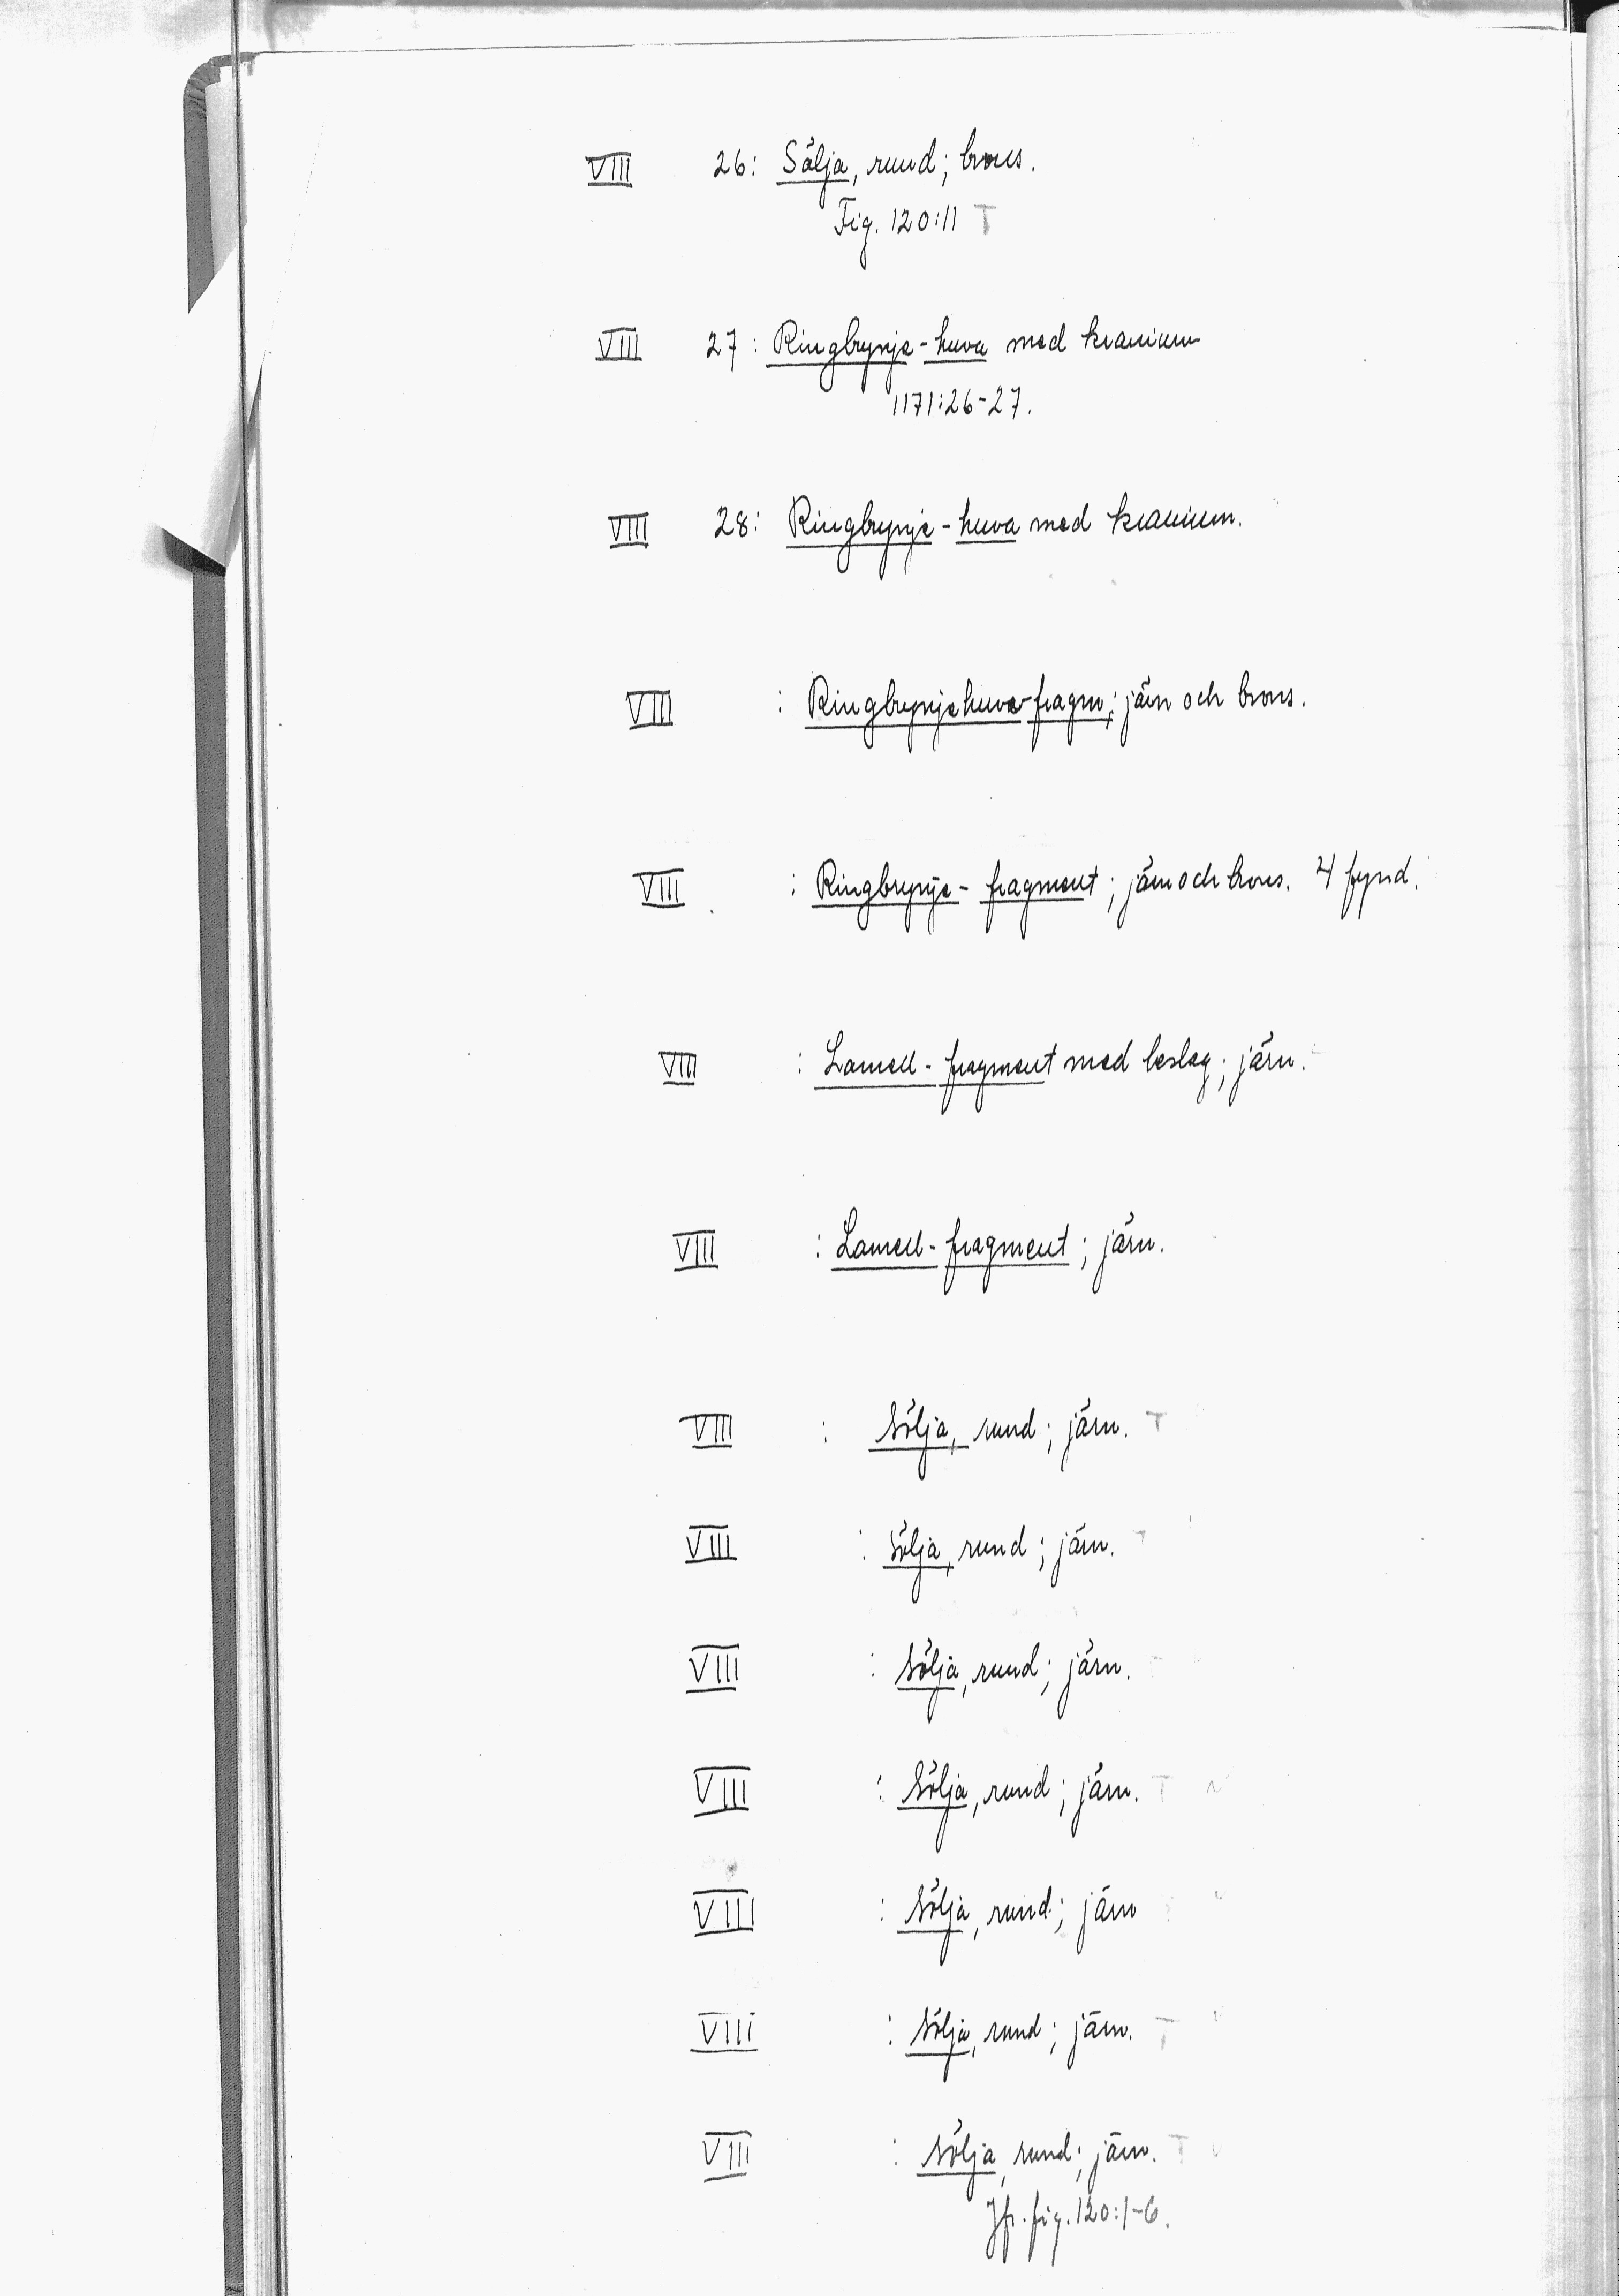 VIII 26: Sölja, rund; brons.
Fig. 120:11 T
VIII 27: Ringbrynje-huva med kranium
1171:26-27.
VIII 28: Ringbrynje-huva med kranium.
VIII : Ringbrynjehuva-fragm; järn och brons.
VIII : Ringbrynje-fragment; järn och brons. 4 fynd.
VIII : Lamell-fragment med beslag; järn.
VIII : Lamell-fragment; järn.
VIII : Sölja, rund; järn. T
VIII : Sölja, rund; järn. T
VIII : Sölja, rund; järn.
VIII : Sölja, rund; järn. T
VIII : Sölja, rund; järn
VIII : Sölja, rund; järn. T
VIII : Sölja, rund; järn. T
Jfr. fig. 120:1-6.